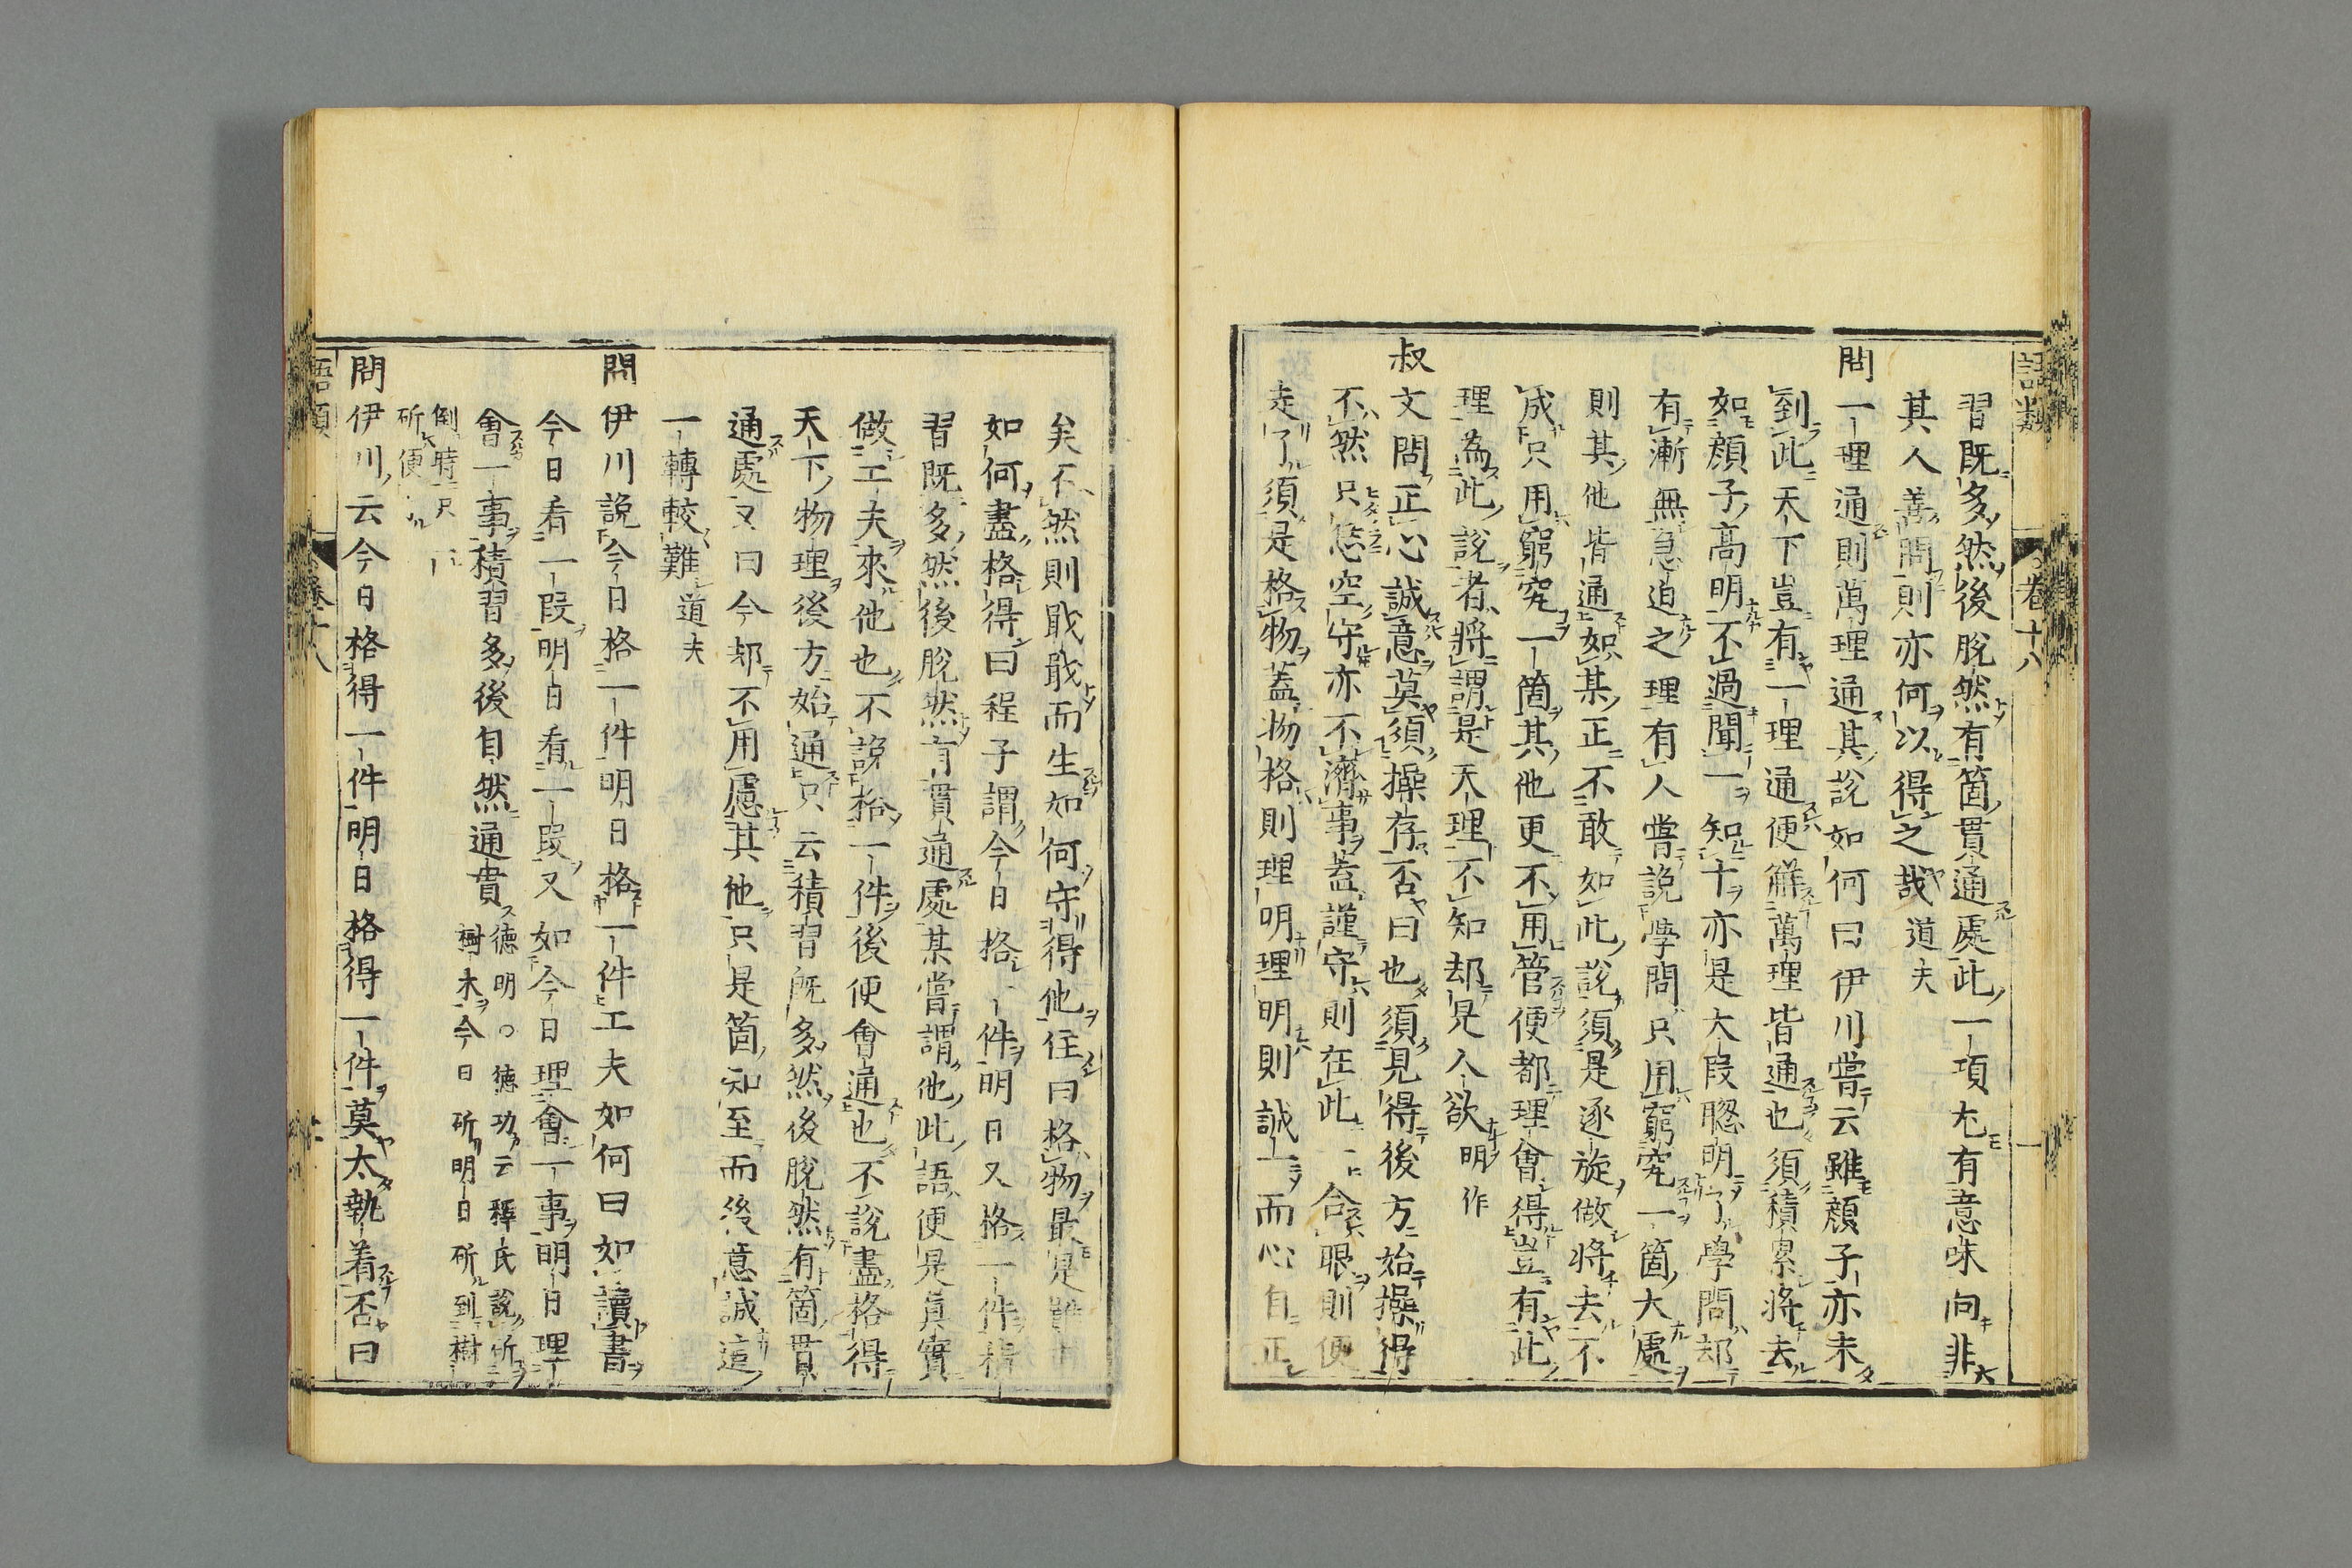 語類 卷十八 一
習既多然後脫然有箇貫通處此一項尤有意味向非
其人善問則亦何以得之哉道夫
問一理通則萬理通其說如何曰伊川嘗云雖顏子亦未
到此天下豈有一理通便解萬理皆通也須積累將去
如顏子高明不過聞一知十亦是大段聰明了學問却
有漸無急迫之理有人嘗說學問只用窮究一箇大處
則其他皆通如某正不敢如此說須是逐旋做將去不
成只用窮究一箇其他更不用管便都理會得豈有此
理為此說者將謂是天理不知却是人欲明作
叔文問正心誠意莫須操存否曰也須見得後方始操得
不然只恁空守亦不濟事蓋謹守則在此一合眼則便
走了須是格物蓋物格則理明理明則誠一而心自正
矣不然則戢戢而生如何守得他住曰格物最是難
如何盡格得曰程子謂今日格一件明日又格一件積
習既多然後脫然有貫通處某嘗謂他此語便是真實
做工夫來他也不說格一件後便會通也不說盡格得
天下物理後方始通只云積習既多然後脫然有箇貫
通處又曰今却不用慮其他只是箇知至而後意誠這
一轉較難道夫
問伊川說今日格一件明日格一件工夫如何曰如讀書
今日看一段明日看一段又如今日理會一事明日理
會一事積習多後自然通貫德明○德功云釋氏說斫
樹木今日斫明日斫到樹
倒時只一
斫便
問伊川云今日格得一件明日格得一件莫太執着否曰
語類 卷十八